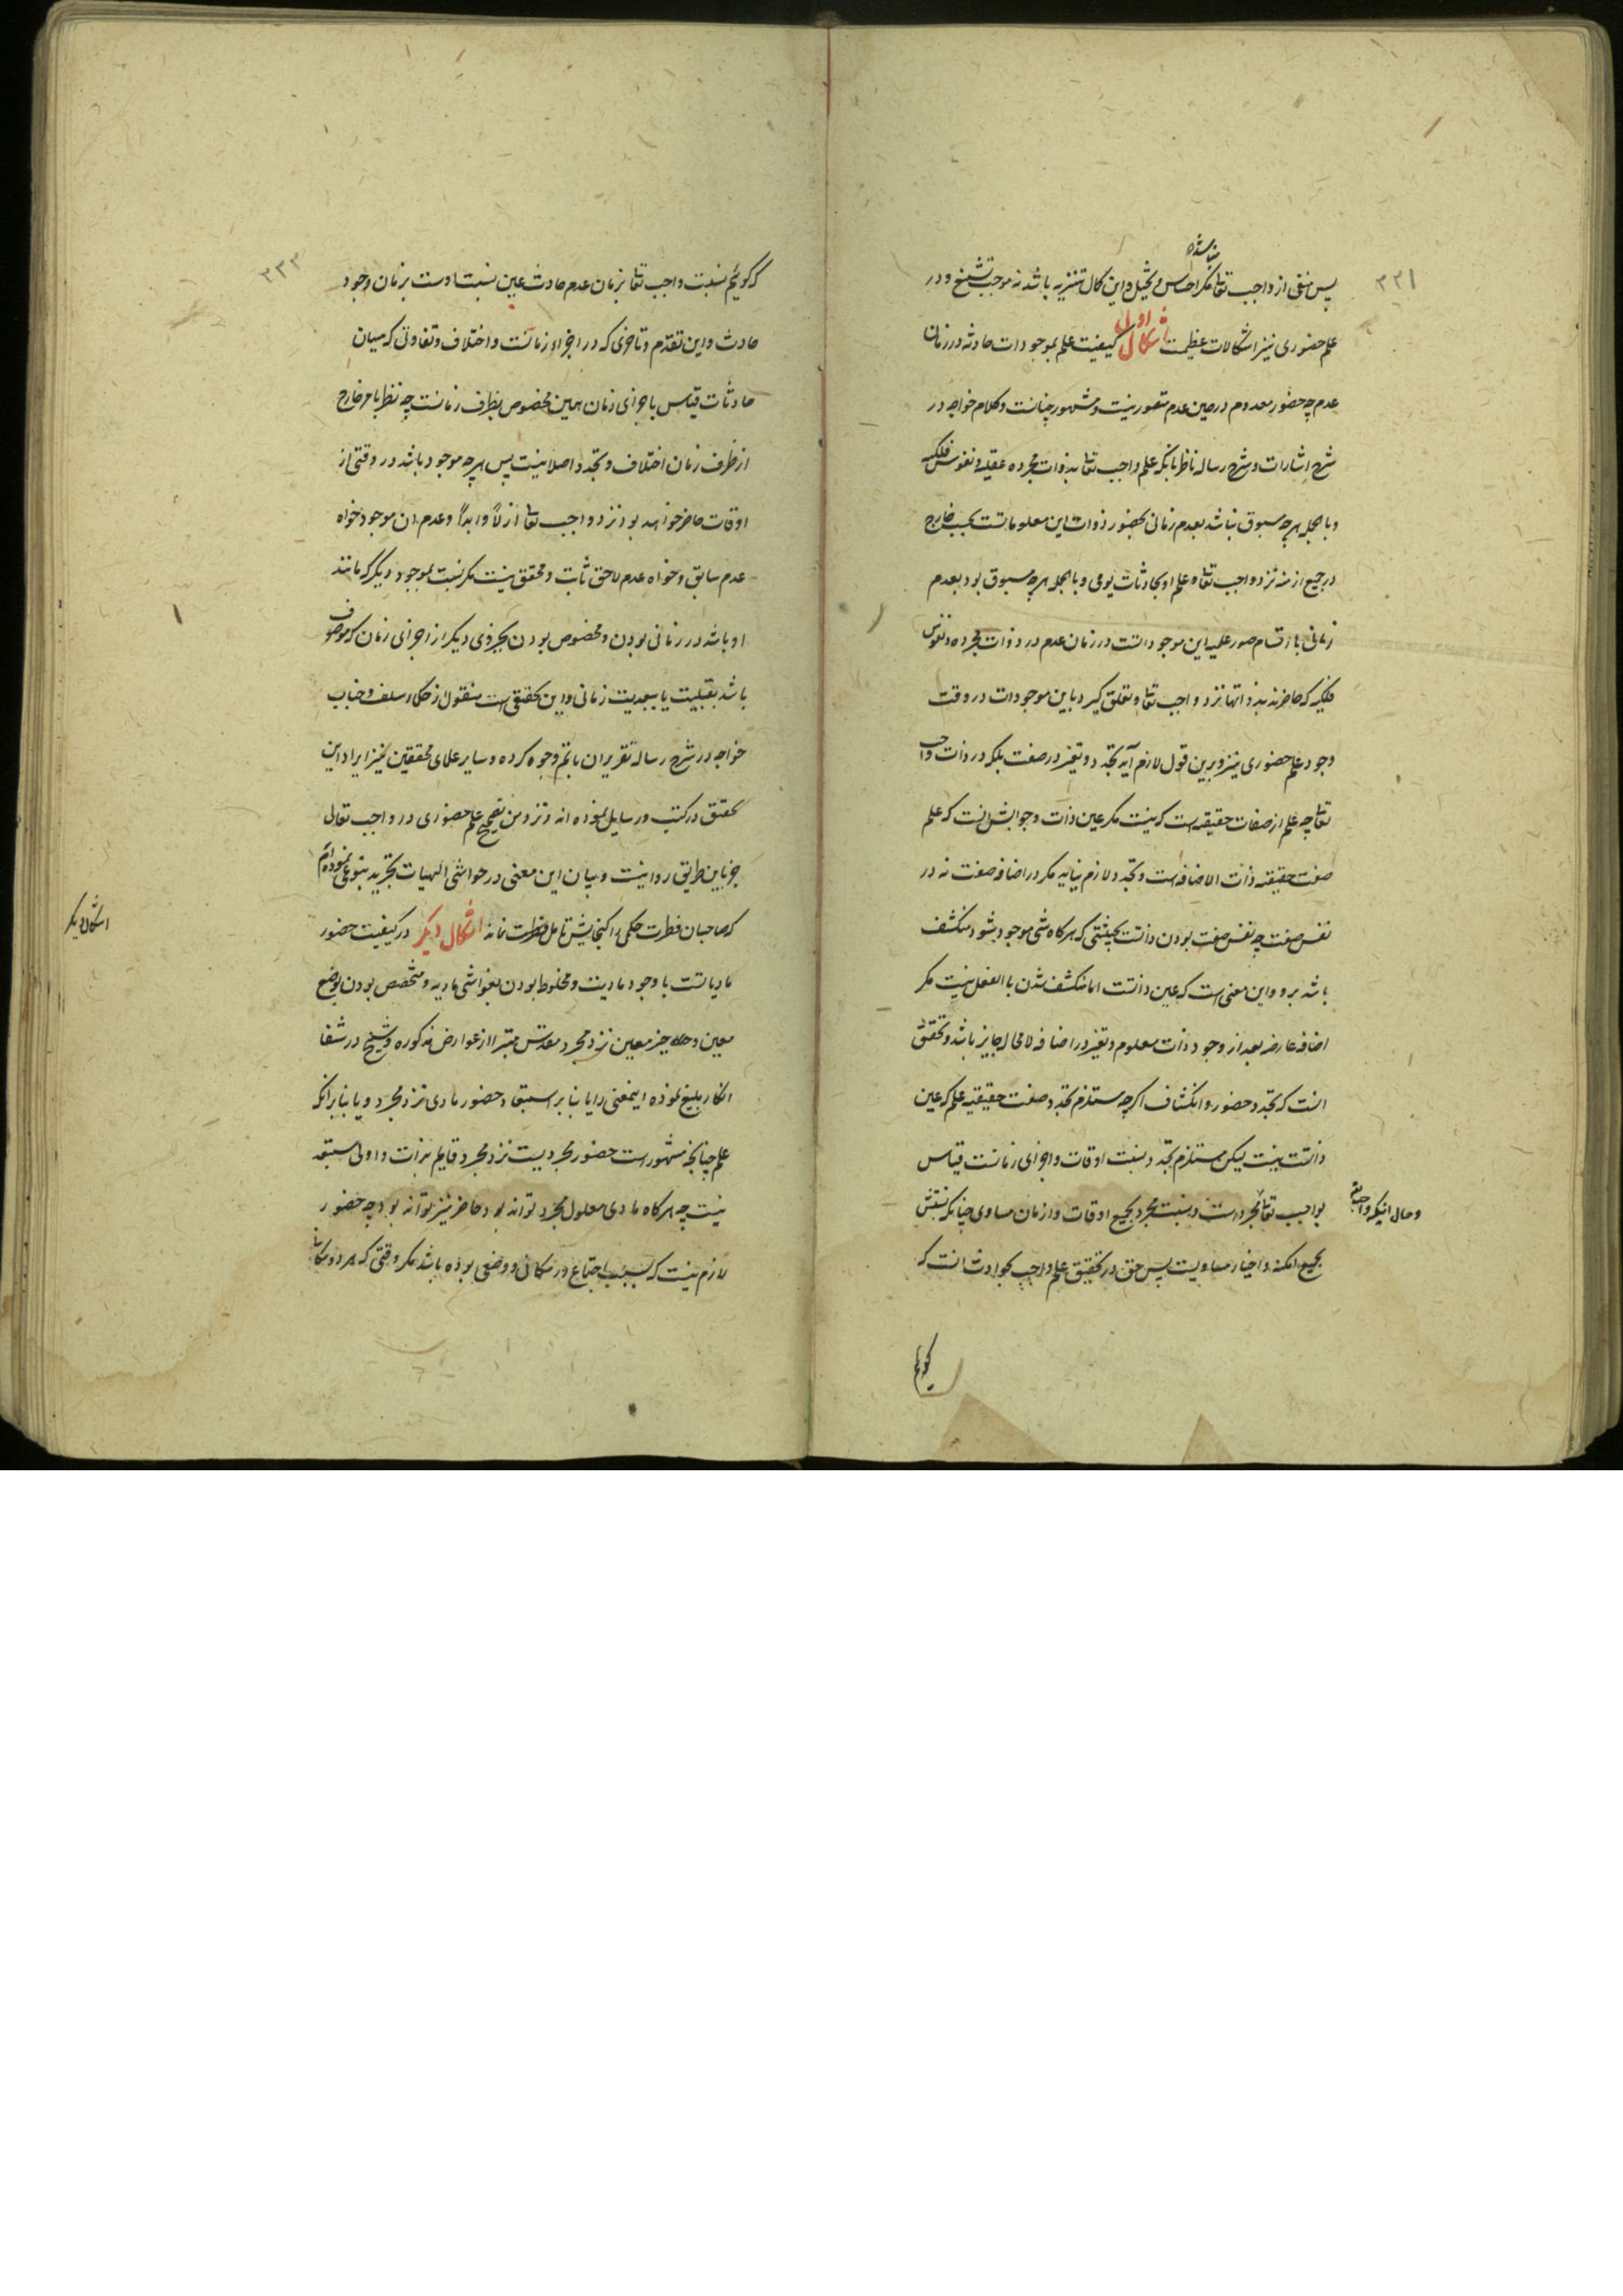 ۲۳۱
نباشد
پس منفی از واجب تعا مکر احساس و تخیل و این کمال تنزیه باشد نه موجب تشنیع و در
علم حضوری نیز اشکالات عظیمست اشکال اول کیفیت علم بموجودات حادثه در زمان
عدم چه حضور معدوم در حین عدم متصور نیست و مشهور چنانست و کلام خواجه در
شرح اشارات و شرح رساله ناظر بانکه علم واجب تعا بذوات مجرده عقلیه و نفوس فلکیه
و بالجمله هرچه مسبوق نباشد بعدم زمانی بحضور ذوات این معلوماتست بحسب خارج
در جمیع ازمنه نزد واجب تعا و علم او بحادثات یومی و بالجمله هرچه مسبوق بود بعدم
زمانی بارتسام صور علمیه این موجوداتست در زمان عدم در ذوات مجرده و نفوس
فلکیه که حاضرند بذواتها نزد واجب تعا و تعلق کیرد باین موجودات در وقت
وجود علم حضوری نیز و برین قول لازم آید تجدد و تغیر در صفت بلکه در ذات واجب
تعا چه علم از صفات حقیقیه است که نیست مکر عین ذات و جوابش انست که علم
صفت حقیقیه ذات الاضافه است و تجدد لازم نیاید مکر در اضافه صفت نه در
نفس صفت چه نفس صفت بودن ذاتست بحیثیتی که هرکاه شی موجود شود منکشف
باشد برو و این معنی است که عین ذاتست اما منکشف شدن بالفعل نیست مکر
اضافه عارضه بعد از وجود ذات معلوم و تغیر در اضافه لامحاله جایز باشد و تحقیق
انست که تجدد حضور و انکشاف اکرچه مستلزم تجدد صفت حقیقیه علم که عین
ذاتست نیست لیکن مستلزم تجدد نسبت اوقات و اجزای زمانست قیاس
بواجب تعا مجرد است و نسبت مجرد بجمیع اوقات و ازمان مساوی چنانکه نسبتش
و حال انیکه واجب تعا
بجمیع امکنه و احیاز مساویست پس حق در تحقیق علم واجب بحوادث انست که
کوئیم
۲۳۲
که کوئیم نسبت واجب تعا بزمان عدم حادث عین نسبت اوست بزمان وجود
حادث و این تقدم و تاخری که در اجزاء زمانست و اختلاف و تفاوتی که میان
حادثات قیاس باجزای زمان هست مخصوص بظرف زمانست چه نظر بامر خارج
از ظرف زمان اختلاف و تجدد اصلا نیست پس هرچه موجود باشد در وقتی از
اوقات حاضر خواهد بود نزد واجب تعا ازلاً و ابداً و عدم ان موجود خواه
عدم سابق و خواه عدم لاحق ثابت و محقق نیست مکر نسبت بموجود دیکر که مانند
او باشد در زمانی بودن و مخصوص بودن بجزوی دیکر از اجزای زمان که موصوف
باشد بقبلیت یا ببعدیت زمانی و این تحقیقی است منقول از حکماء سلف و جناب
خواجه در شرح رساله تقریر ان باتم وجوه کرده و سایر علمای محققین نیز ایراد این
تحقیق در کتب و رسایل نموده اند و نزد من تصحیح علم حضوری در واجب تعالی
جز باین طریق روا نیست و بیان این معنی در حواشی الهیات تجرید بنوعی نموده‌ام
که صاحبان فطرت حکمی را کنجایش تامل نمانده اشکال دیکر در کیفیت حضور
اشکال دیکر
مادیاتست با وجود مادیت و مخلوط بودن بغواشی مادیه و متخصص بودن بوضع
معین و حیز معین نزد مجرد مقدس مبرا از عوارض مذکوره و شیخ در شفا
انکار بلیغ نموده اینمعنی را یا بنا بر استبعاد حضور مادی نزد مجرد و یا بنا برانکه
علم چنانچه مشهور است حضور مجردیست نزد مجرد قایم بذات و اولی مستبعد
نیست چه هرکاه مادی معلول مجرد تواند بود حاضر نیز تواند بود چه حضور
لازم نیست که بسبب اجتماع در مکانی و وضعی بوده باشد مکر وقتی که هر دو مکانی